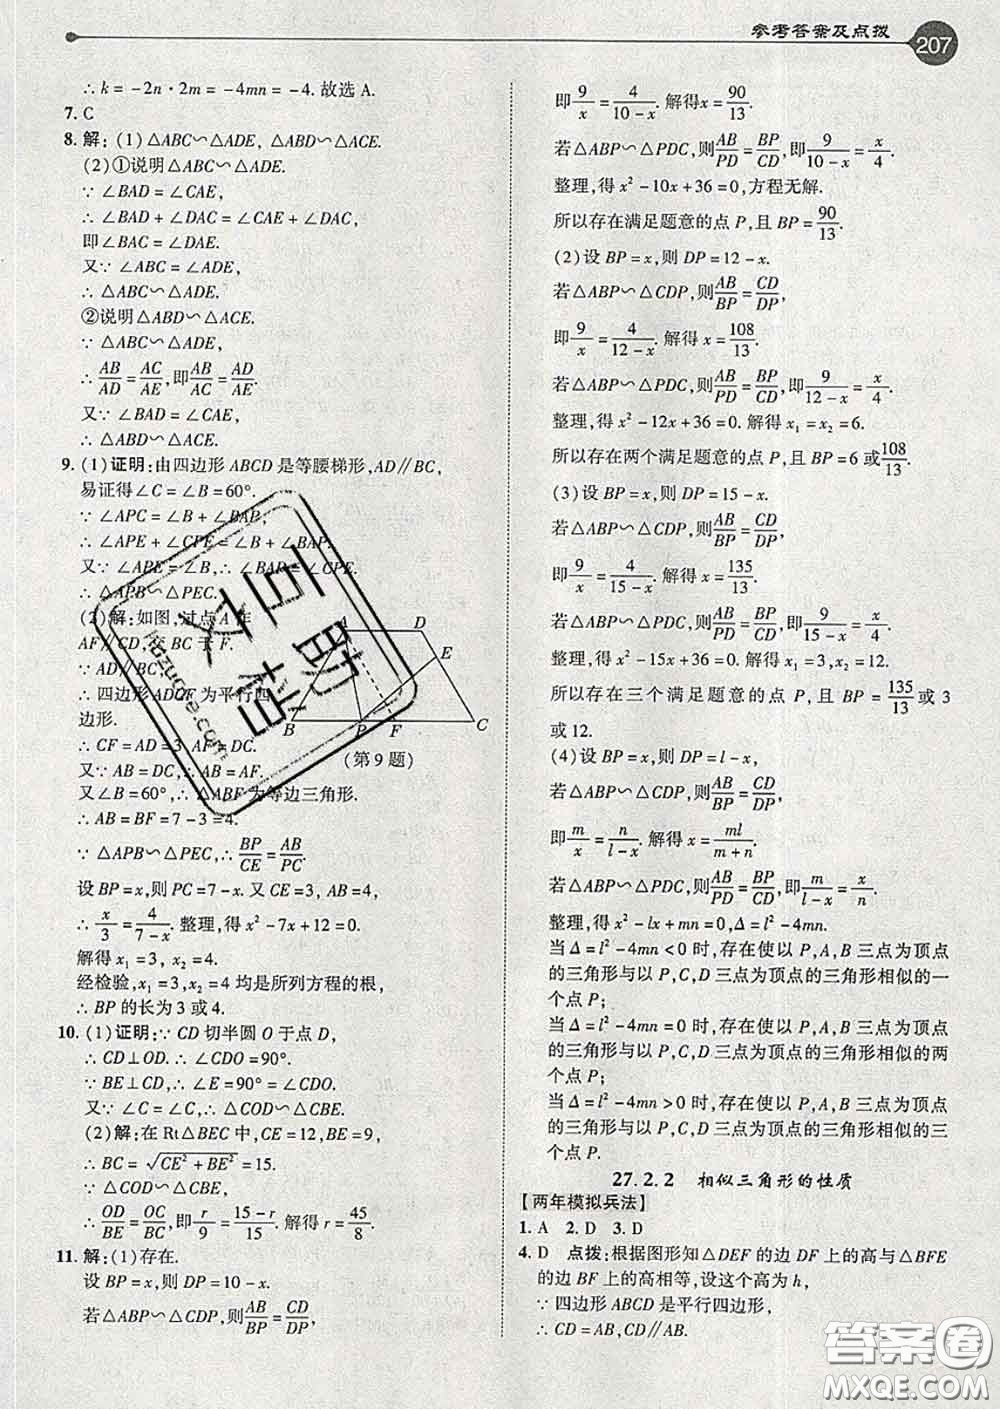 参考答案及点拨
207
∴ k = -2n·2m = -4mn = -4. 故选 A.
7. C
8. 解: (1) △ABC∽△ADE, △ABD∽△ACE.
(2) ①说明△ABC∽△ADE.
∵ ∠BAD = ∠CAE,
∴ ∠BAD + ∠DAC = ∠CAE + ∠DAC,
即∠BAC = ∠DAE.
又∵ ∠ABC = ∠ADE,
∴ △ABC∽△ADE.
②说明△ABD∽△ACE.
∵ △ABC∽△ADE,
∴ AB/AD = AC/AE, 即 AB/AC = AD/AE.
又∵ ∠BAD = ∠CAE,
∴ △ABD∽△ACE.
9. (1) 证明: 由四边形 ABCD 是等腰梯形, AD∥BC,
易证得∠C = ∠B = 60°.
∵ ∠APC = ∠B + ∠BAP,
∴ ∠APE + ∠CPE = ∠B + ∠BAP.
∵ ∠APE = ∠B, ∴ ∠BAP = ∠CPE.
∴ △APB∽△PEC.
(2) 解: 如图, 过点 A 作
AF∥CD, 交 BC 于 F.
∵ AD∥BC,
∴ 四边形 ADCF 为平行四
边形.
∴ CF = AD = 3, AF = DC.
又∵ AB = DC, ∴ AB = AF.
又∠B = 60°, ∴ △ABF 为等边三角形.
∴ AB = BF = 7 - 3 = 4.
∵ △APB∽△PEC, ∴ BP/CE = AB/PC.
设 BP = x, 则 PC = 7 - x. 又 CE = 3, AB = 4,
∴ x/3 = 4/(7 - x). 整理, 得 x² - 7x + 12 = 0.
解得 x₁ = 3, x₂ = 4.
经检验, x₁ = 3, x₂ = 4 均是所列方程的根,
∴ BP 的长为 3 或 4.
A D E B P F C
(第 9 题)
10. (1) 证明: ∵ CD 切半圆 O 于点 D,
∴ CD⊥OD. ∴ ∠CDO = 90°.
∵ BE⊥CD, ∴ ∠E = 90° = ∠CDO.
又∵ ∠C = ∠C, ∴ △COD∽△CBE.
(2) 解: 在 Rt△BEC 中, CE = 12, BE = 9,
∴ BC = √(CE² + BE²) = 15.
∵ △COD∽△CBE.
∴ OD/BE = OC/BC, 即 r/9 = (15 - r)/15. 解得 r = 45/8.
11. 解: (1) 存在.
设 BP = x, 则 DP = 10 - x.
若△ABP∽△CDP, 则 AB/BP = CD/DP,
即 9/x = 4/(10 - x). 解得 x = 90/13.
若△ABP∽△PDC, 则 AB/PD = BP/CD, 即 9/(10 - x) = x/4.
整理, 得 x² - 10x + 36 = 0, 方程无解.
所以存在满足题意的点 P, 且 BP = 90/13.
(2) 设 BP = x, 则 DP = 12 - x.
若△ABP∽△CDP, 则 AB/BP = CD/DP,
即 9/x = 4/(12 - x). 解得 x = 108/13.
若△ABP∽△PDC, 则 AB/PD = BP/CD, 即 9/(12 - x) = x/4.
整理, 得 x² - 12x + 36 = 0. 解得 x₁ = x₂ = 6.
所以存在两个满足题意的点 P, 且 BP = 6 或 108/13.
(3) 设 BP = x, 则 DP = 15 - x.
若△ABP∽△CDP, 则 AB/BP = CD/DP,
即 9/x = 4/(15 - x). 解得 x = 135/13.
若△ABP∽△PDC, 则 AB/PD = BP/CD, 即 9/(15 - x) = x/4.
整理, 得 x² - 15x + 36 = 0. 解得 x₁ = 3, x₂ = 12.
所以存在三个满足题意的点 P, 且 BP = 135/13 或 3
或 12.
(4) 设 BP = x, 则 DP = l - x,
若△ABP∽△CDP, 则 AB/BP = CD/DP,
即 m/x = n/(l - x). 解得 x = ml/(m + n).
若△ABP∽△PDC, 则 AB/PD = BP/CD, 即 m/(l - x) = x/n.
整理, 得 x² - lx + mn = 0, Δ = l² - 4mn.
当 Δ = l² - 4mn < 0 时, 存在使以 P, A, B 三点为顶点
的三角形与以 P, C, D 三点为顶点的三角形相似的一
个点 P;
当 Δ = l² - 4mn = 0 时, 存在使以 P, A, B 三点为顶点
的三角形与以 P, C, D 三点为顶点的三角形相似的两
个点 P;
当 Δ = l² - 4mn > 0 时, 存在使以 P, A, B 三点为顶点
的三角形与以 P, C, D 三点为顶点的三角形相似的三
个点 P.
27.2.2 相似三角形的性质
【两年模拟兵法】
1. A 2. D 3. D
4. D 点拨: 根据图形知△DEF 的边 DF 上的高与△BFE
的边 BF 上的高相等, 设这个高为 h,
∵ 四边形 ABCD 是平行四边形,
∴ CD = AB, CD∥AB.
答案圈
MXQE.COM